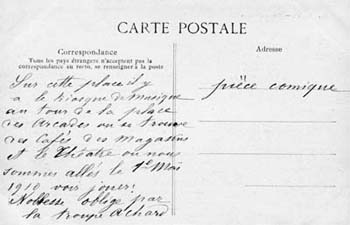 CARTE POSTALE
Correspondance
Tous les pays étrangers n'acceptent pas la
correspondance au recto, se renseigner à la poste
Adresse
Sur cette place il y
a le kiosque de musique
au tour de la place
des Arcades ou se trouve
des Cafés des Magasins
et le théâtre ou nous
sommes allés le 1er Mai
1910 voir jouer:
Noblesse oblige par
la troupe Achard
pièce comique